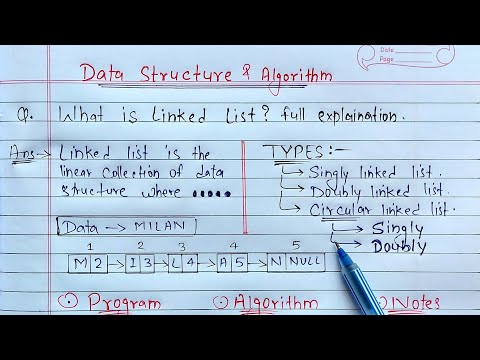 Date
Page
Data Structure & Algorithm
Q. What is Linked List? full explaination.
Ans→ Linked list is the
linear collection of data
structure where .....
TYPES:-
→ Singly linked list.
→ Doubly linked list.
→ Circular linked list.
→ Singly
→ Doubly
Data → MILAN
1 2 3 4 5
M 2 → I 3 → L 4 → A 5 → N NULL
Program Algorithm Notes